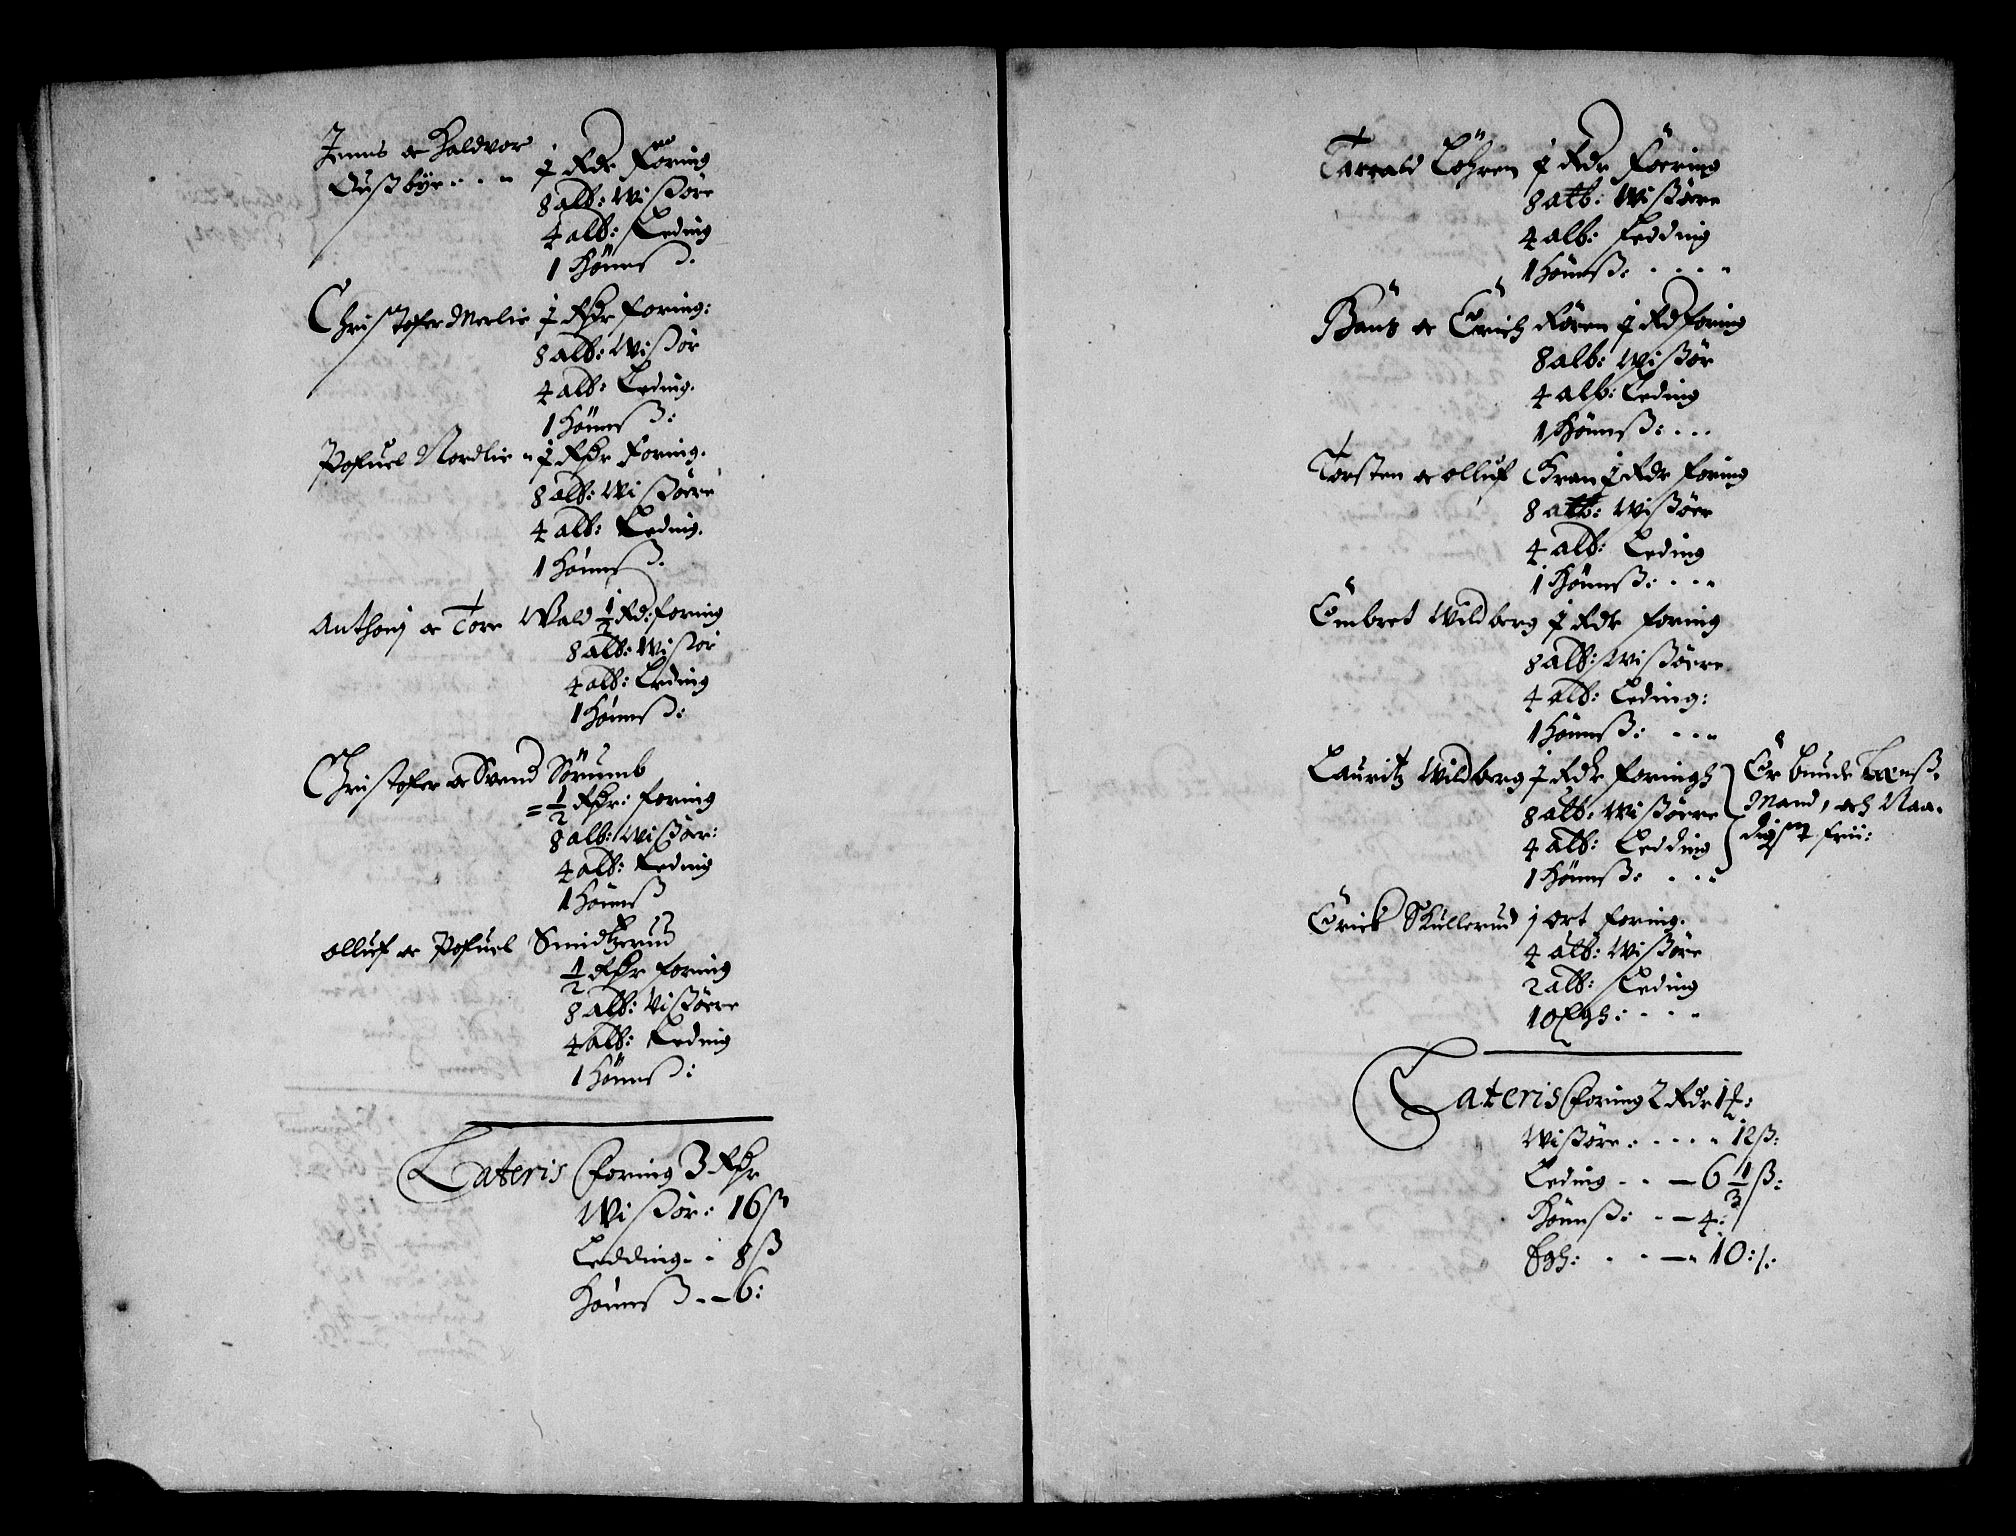 Jenns oc Haldvor
Oustbye . . . ½ Rdr Foring
8 alb: Wissøre
4 alb: Leding
1 Hønnß.
Christofer Merlie ½ Rdr foring:
8 alb: Wissør
4 alb: Leding.
1 Hønnß:
Pofuel Nordlie ½ Rdr foring.
8 alb: Wissøere
4 alb: Leding.
1 Hønnß.
Anthonj oc Tore Wald ½ Rd: foring
8 alb: Wissør
4 alb: Leding
1 Hønnß:
Christofer oc Svend Sørumb
= ½ Rdr: foring
8 alb: Wissøer:
4 alb: Leding
1 Hønnß
olluf oc Pofuel Smidtzerud
½ Rdr foring
8 alb: Wissøere
4 alb: Leding
1 Hønnß:
Lateris foring 3 Rdr
Wissør: 16 ß
Ledding. . 8 ß
Hønnß . — 6:
Taraald Løhren ½ Rdr Foering
8 alb: Wissøere
4 alb: Ledding
1 Hønnß: . . . .
Hans oc Erich Røren ½ Rd foring
8 alb: Wissør
4 alb: Leding
1 Hønnß: . . .
Torsten oc olluf Gran ½ Rdr foring
8 alb: Wissøer
4 alb: Leding
1 Hønnß: . . .
Embret Wildberg ½ Rdr foring
8 alb: Wissøere
4 alb: Leding:
1 Hønnß: . . .
Lauritz Wildberg ½ Rdr foringh
8 alb: Wissøere
4 alb: Ledding
1 Hønnß: . . .
Er bunde Lenß.
Mand, och Naa.
digst frii:
Erick Skullerud 1 ort foring.
4 alb: Wissøre
2 alb: Leding
10 Egh: . . .
Lateris foring 2 Rdr
Wissøre . . . . . 12 ß:
Leding . . — 6 1/3 ß:
Hønnß: . — 4:
Egh: . . — 10:/: